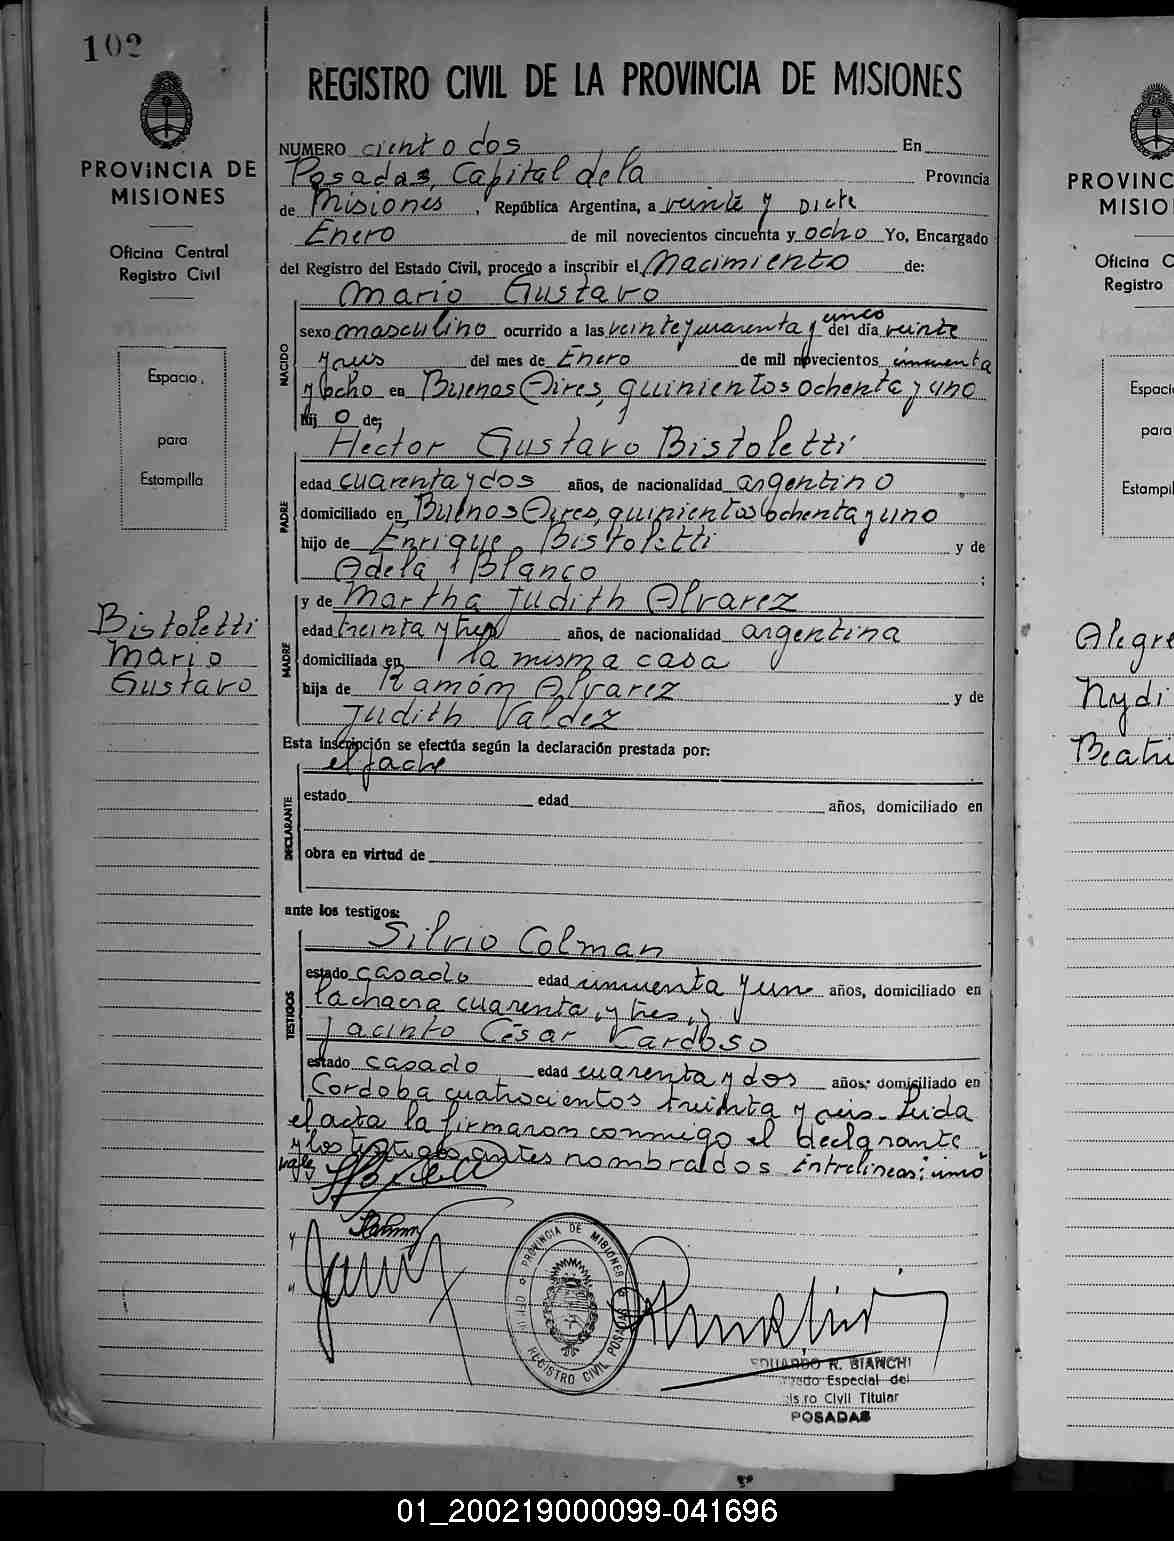 102
PROVINCIA DE
MISIONES
Oficina Central
Registro Civil
Espacio
para
Estampilla
Bistoletti
Mario
Gustavo
REGISTRO CIVIL DE LA PROVINCIA DE MISIONES
NUMERO ciento dos En
Posadas, Capital de la Provincia
de Misiones, República Argentina, a veinte y siete
Enero de mil novecientos cincuenta y ocho Yo, Encargado
del Registro del Estado Civil, procedo a inscribir el Nacimiento de:
Mario Gustavo
NACIDO
sexo masculino ocurrido a las veinte y cuarenta y cinco del día veinte
y seis del mes de Enero de mil novecientos cincuenta
y ocho en Buenos Aires, quinientos ochenta y uno
hij o de;
Hector Gustavo Bistoletti
PADRE
edad cuarenta y dos años, de nacionalidad argentino
domiciliado en Buenos Aires, quinientos ochenta y uno
hijo de Enrique Bistoletti y de
Adela Blanco ;
y de Martha Judith Alvarez
MADRE
edad treinta y tres años, de nacionalidad argentina
domiciliada en la misma casa
hija de Ramón Alvarez y de
Judith Valdez
Esta inscripción se efectúa según la declaración prestada por:
el padre
DECLARANTE
estado edad años, domiciliado en
obra en virtud de
ante los testigos:
Silvio Colman
TESTIGOS
estado casado edad cincuenta y un años, domiciliado en
la chacra cuarenta y tres, y
Jacinto César Cardoso
estado casado edad cuarenta y dos años, domiciliado en
Cordoba cuatrocientos treinta y seis. Leida
el acta la firmaron conmigo el declarante
y los testigos antes nombrados Entrelineas: cinco
vale
PROVINCIA DE MISIONES
REGISTRO CIVIL POSADAS
EDUARDO R. BIANCHI
Especial del
Civil Titular
POSADAS
PROVINC
MISIO
Oficina C
Registro
Espacio
para
Estampil
Alegre
Nydi
Beatri
01_200219000099-041696